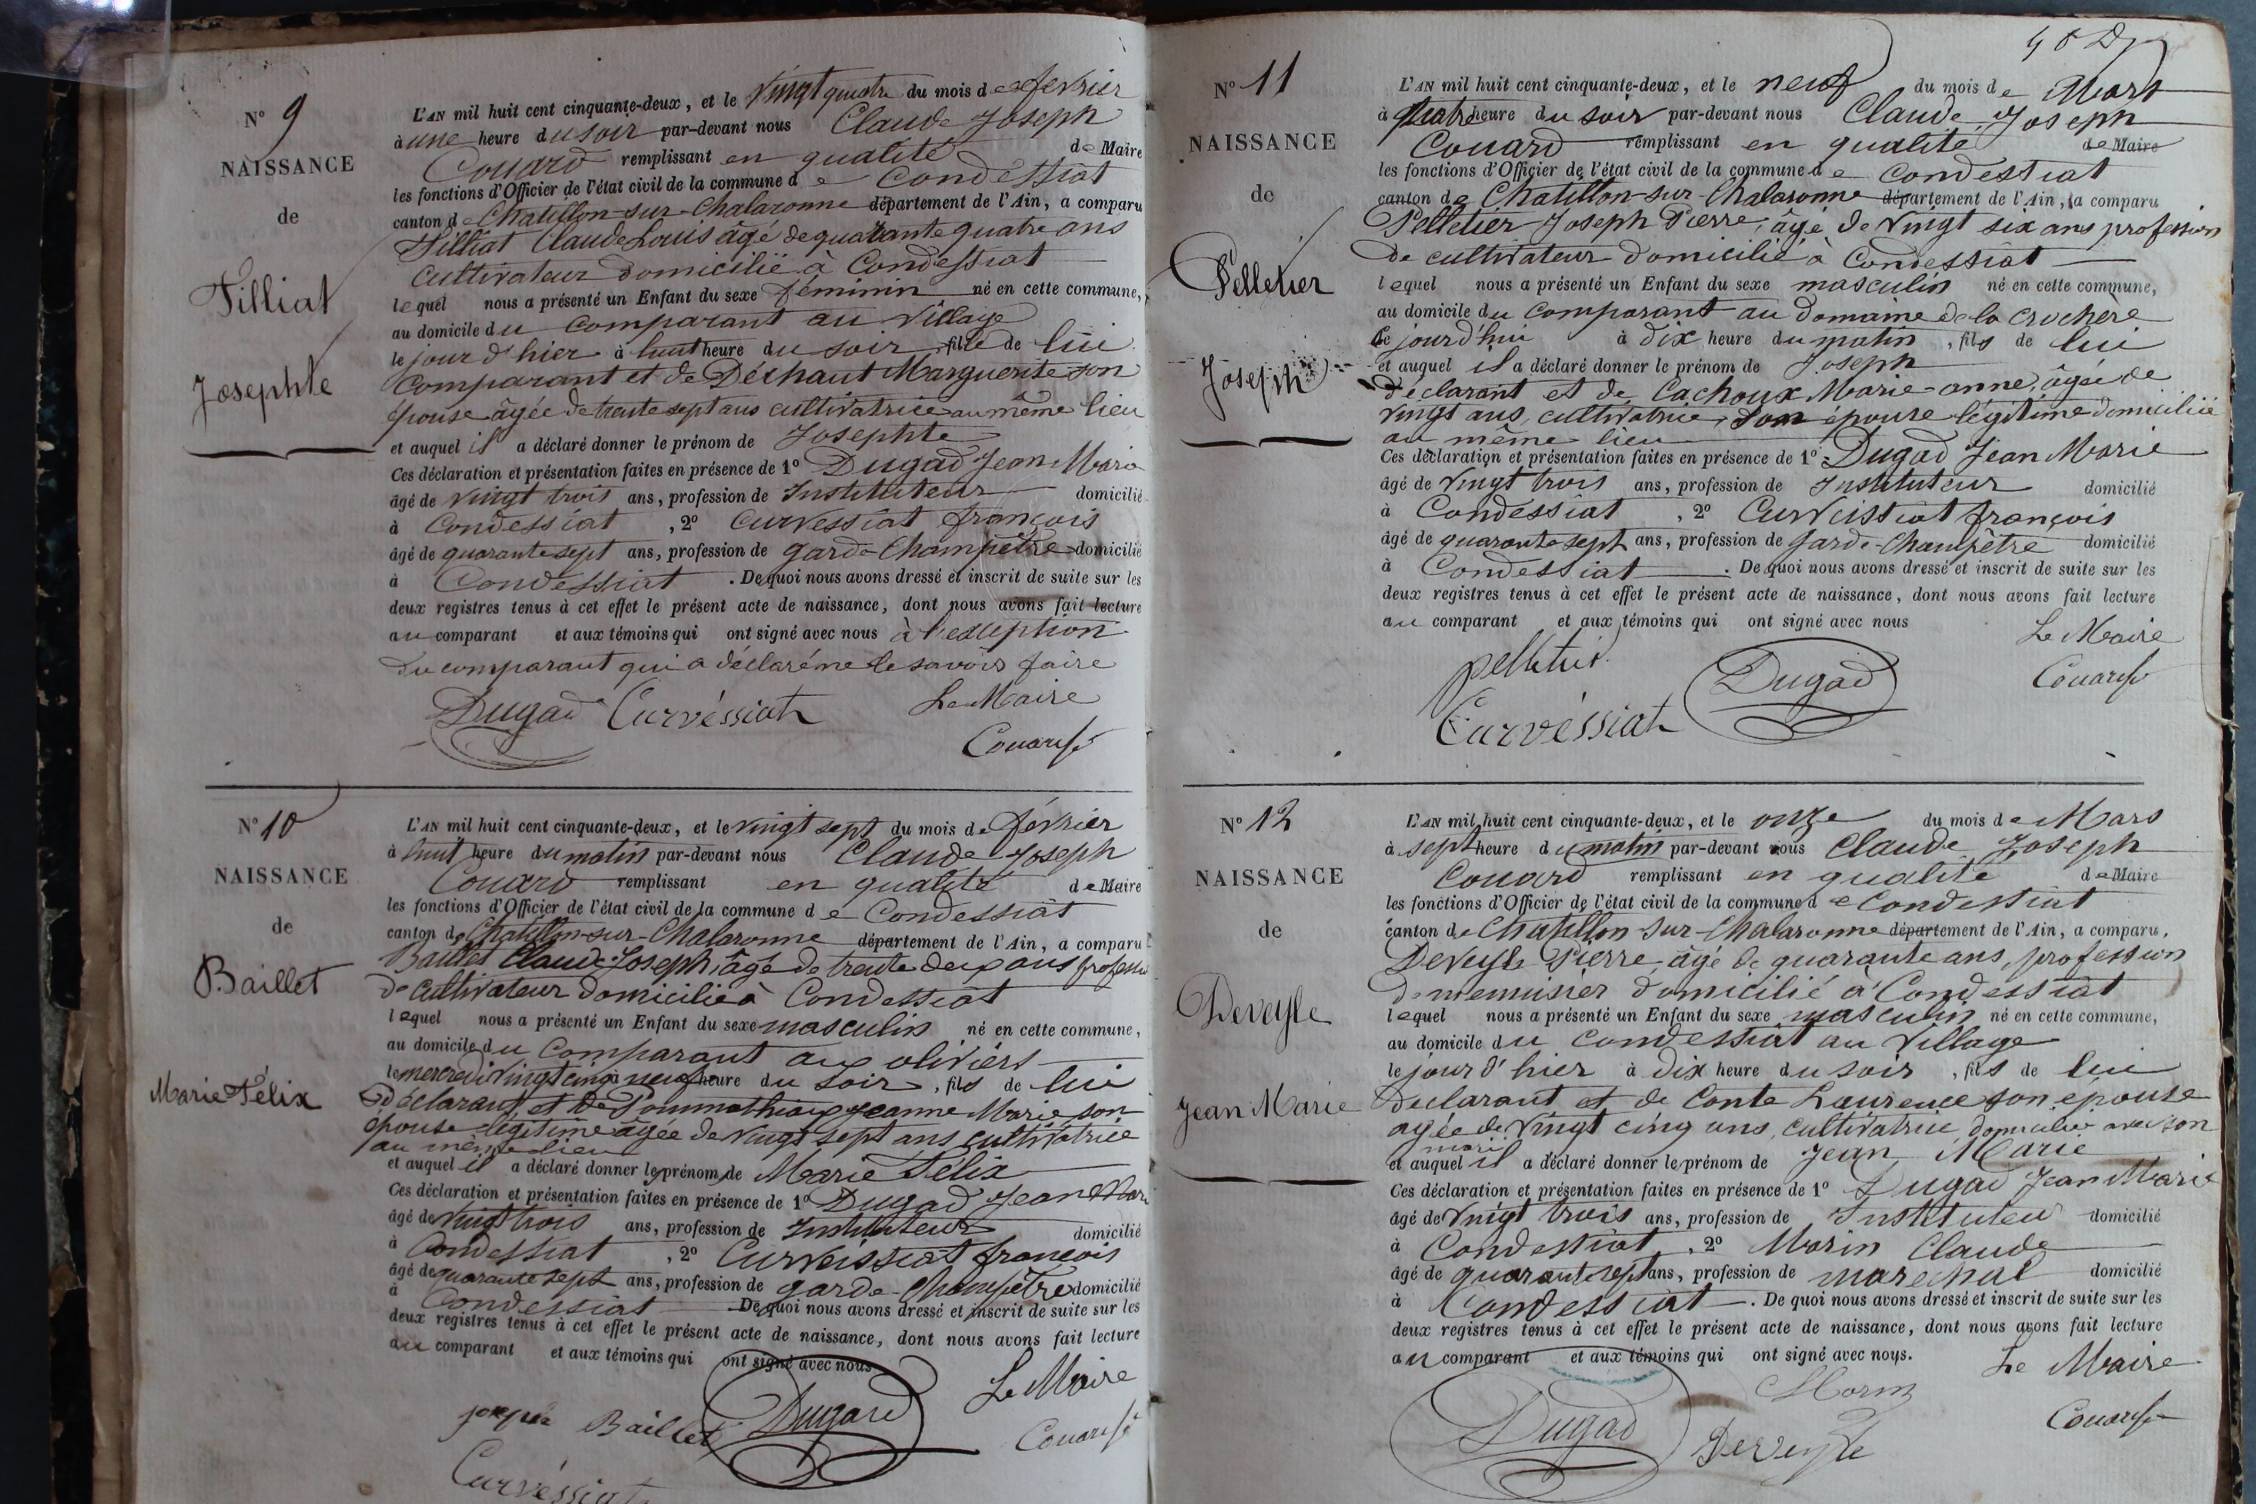 N° 9
NAISSANCE
de
Tilliat
Josephte
L'AN mil huit cent cinquante-deux, et le vingt quatre du mois de février
à une heure du soir par-devant nous Claude Joseph
Couard remplissant en qualité de Maire
les fonctions d'Officier de l'état civil de la commune de Condessiat
canton de Chatillon-sur-Chalaronne département de l'Ain, a comparu
Tilliat Claude Louis âgé de quarante quatre ans
cultivateur domicilié à Condessiat
lequel nous a présenté un Enfant du sexe féminin né en cette commune,
au domicile du comparant au village
le jour d'hier à huit heure du soir, fille de lui
comparant et de Déchaut Marguerite son
épouse âgée de trente sept ans cultivatrice au même lieu
et auquel il a déclaré donner le prénom de Josephte
Ces déclaration et présentation faites en présence de 1° Dugad Jean Marie
âgé de vingt trois ans, profession de Instituteur domicilié
à Condessiat, 2° Curvessiat françois
âgé de quarante sept ans, profession de garde-Champêtre domicilié
à Condessiat. De quoi nous avons dressé et inscrit de suite sur les
deux registres tenus à cet effet le présent acte de naissance, dont nous avons fait lecture
au comparant et aux témoins qui ont signé avec nous à l'exception
du comparant qui a déclaré ne le savoir faire
Dugad Curvéssiat Le Maire
Couard
N° 10
NAISSANCE
de
Baillet
Marie Félix
L'AN mil huit cent cinquante-deux, et le vingt sept du mois de février
à huit heure du matin par-devant nous Claude Joseph
Couard remplissant en qualité de Maire
les fonctions d'Officier de l'état civil de la commune de Condessiat
canton de Chatillon-sur-Chalaronne département de l'Ain, a comparu
Baillet Claude Joseph âgé de trente deux ans professio
de cultivateur domicilié à Condessiat
lequel nous a présenté un Enfant du sexe masculin né en cette commune,
au domicile du comparant aux oliviers
le mercredi vingt cinq à neuf heure du soir, fils de lui
déclarant et de Pommathiau Jeanne Marie son
épouse légitime âgée de vingt sept ans cultivatrice
au même lieu
et auquel il a déclaré donner le prénom de Marie Félix
Ces déclaration et présentation faites en présence de 1° Dugad Jean Marie
âgé de vingt trois ans, profession de Instituteur domicilié
à Condessiat, 2° Curveissiat françois
âgé de quarante sept ans, profession de garde-Champêtre domicilié
à Condessiat De quoi nous avons dressé et inscrit de suite sur les
deux registres tenus à cet effet le présent acte de naissance, dont nous avons fait lecture
au comparant et aux témoins qui ont signé avec nous
Le Maire
Baillet Dugad Couard
Curvéssiat
N° 11
NAISSANCE
de
Pelletier
Joseph
L'AN mil huit cent cinquante-deux, et le neuf du mois de Mars
à quatre heure du soir par-devant nous Claude Joseph
Couard remplissant en qualité de Maire
les fonctions d'Officier de l'état civil de la commune de Condestiat
canton de Chatillon-sur-Chalaronne département de l'Ain, a comparu
Pelletier Joseph Pierre, âgé de vingt six ans profession
de cultivateur domicilié à Condessiat
lequel nous a présenté un Enfant du sexe masculin né en cette commune,
au domicile du comparant au domaine de la crochère
le jourd'hui à dix heure du matin, fils de lui
et auquel il a déclaré donner le prénom de Joseph
déclarant et de Cachoux Marie-anne, âgée de
vingt ans, cultivatrice, son épouse légitime domiciliée
au même lieu
Ces déclaration et présentation faites en présence de 1° Dugad Jean Marie
âgé de vingt trois ans, profession de Instituteur domicilié
à Condessiat, 2° Curveissiat françois
âgé de quarante sept ans, profession de garde-Champêtre domicilié
à Condessiat. De quoi nous avons dressé et inscrit de suite sur les
deux registres tenus à cet effet le présent acte de naissance, dont nous avons fait lecture
au comparant et aux témoins qui ont signé avec nous
Le Maire
Dugad Couard
Curvéssiat
N° 12
NAISSANCE
de
Deveyle
Jean Marie
L'AN mil huit cent cinquante-deux, et le onze du mois de Mars
à sept heure du matin par-devant nous Claude Joseph
Couard remplissant en qualité de Maire
les fonctions d'Officier de l'état civil de la commune de Condestiat
canton de Chatillon-sur-Chalaronne département de l'Ain, a comparu,
Deveyle Pierre, âgé de quarante ans, profession
de menuisier domicilié à Condessiat
lequel nous a présenté un Enfant du sexe masculin né en cette commune,
au domicile du Condessiat au village
le jour d'hier à dix heure du soir, fils de lui
déclarant et de Conte Laurence son épouse
agée de vingt cinq ans, cultivatrice domiciliée avec son
mari
et auquel il a déclaré donner le prénom de Jean Marie
Ces déclaration et présentation faites en présence de 1° Dugad Jean Marie
âgé de vingt trois ans, profession de Instituteur domicilié
à Condestiat, 2° Morin Claude
âgé de quarante sept ans, profession de marechal domicilié
à Condessiat. De quoi nous avons dressé et inscrit de suite sur les
deux registres tenus à cet effet le présent acte de naissance, dont nous avons fait lecture
au comparant et aux témoins qui ont signé avec nous.
Le Maire
Morin
Dugad Deveyle Couard